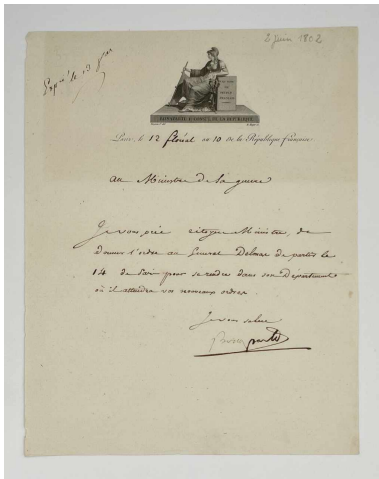 2 juin 1802
Expié le 13 flor
BONAPARTE 1er CONSUL DE LA RÉPUBLIQUE
Paris, le 12 floréal an 10 de la République française
au Ministre de la guerre
Je vous prie citoyen Ministre de
donner l'ordre au General Delmas de partir le
14 de Paris pour se rendre dans son Département
où il attendra vos nouveaux ordres
Je vous salue
Bonaparte